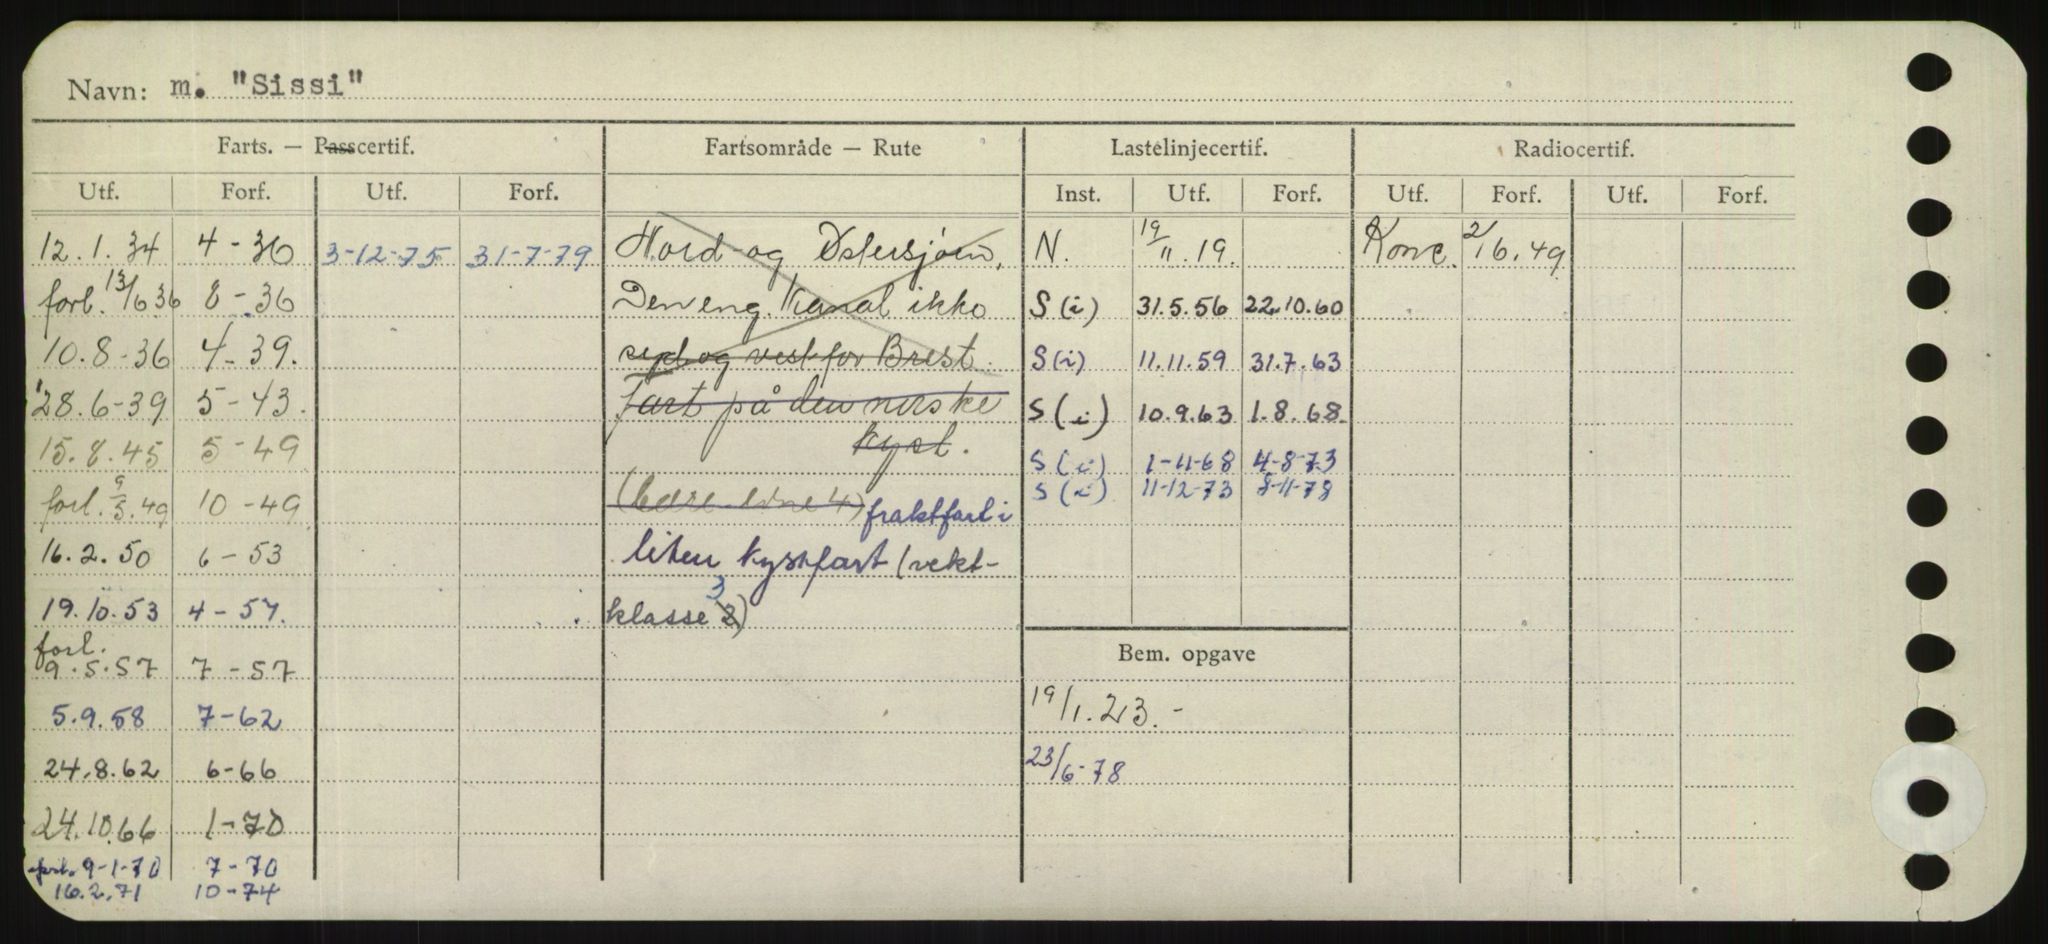 Navn: m. "Sissi"
Farts. — Passcertif. Fartsområde — Rute Lastelinjecertif. Radiocertif.
Utf. Forf. Utf. Forf. Inst. Utf. Forf. Utf. Forf. Utf. Forf.
12.1.34 4-36 3-12-75 31-7-79 Nord- og Østersjøen, N. 19/11.19. Konc. 2/16.49
forl. 13/6 36 8-36 Den eng. Kanal ikke S(i) 31.5.56 22.10.60
10.8-36 4-39. syd og vest for Brest. S(i) 11.11.59 31.7.63
28.6-39 5-43. fart på den norske S(i) 10.9.63 1.8.68
15.8.45 5-49 kyst. S(i) 1-11-68 4-8-73
S(i) 11-12-73 8-11-78
forl. 9/5.49 10-49 fraktfart i
16.2.50 6-53 liten kystfart (vekt-
19.10.53 4-57. klasse 2) 3
forl.
9.5.57 7-57 Bem. opgave
5.9.58 7-62 19/1.23.-
24.8.62 6-66 23/6-78
24.10.66 1-70
forl. 9-1-70 7-70
16.2.71 10-74